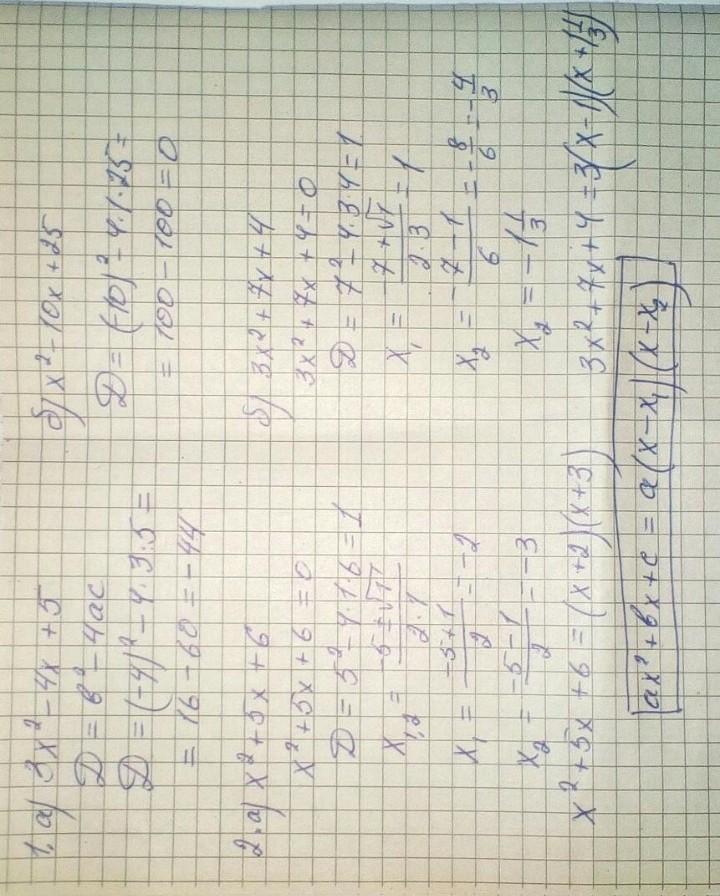 1. а) 3x² - 4x + 5
D = b² - 4ac
D = (-4)² - 4·3·5 =
= 16 - 60 = -44
б) x² - 10x + 25
D = (-10)² - 4·1·25 =
= 100 - 100 = 0
2. а) x² + 5x + 6
x² + 5x + 6 = 0
D = 5² - 4·1·6 = 1
x₁,₂ = (-5 ± √1)/(2·1)
x₁ = (-5+1)/2 = -2
x₂ = (-5-1)/2 = -3
x² + 5x + 6 = (x+2)(x+3)
б) 3x² + 7x + 4
3x² + 7x + 4 = 0
D = 7² - 4·3·4 = 1
x₁ = (-7 + √1)/(2·3) = 1
x₂ = (-7-1)/6 = -8/6 = -4/3
x₂ = -1 1/3
3x² + 7x + 4 = 3(x-1)(x+1 1/3)
ax² + bx + c = a(x - x₁)(x - x₂)